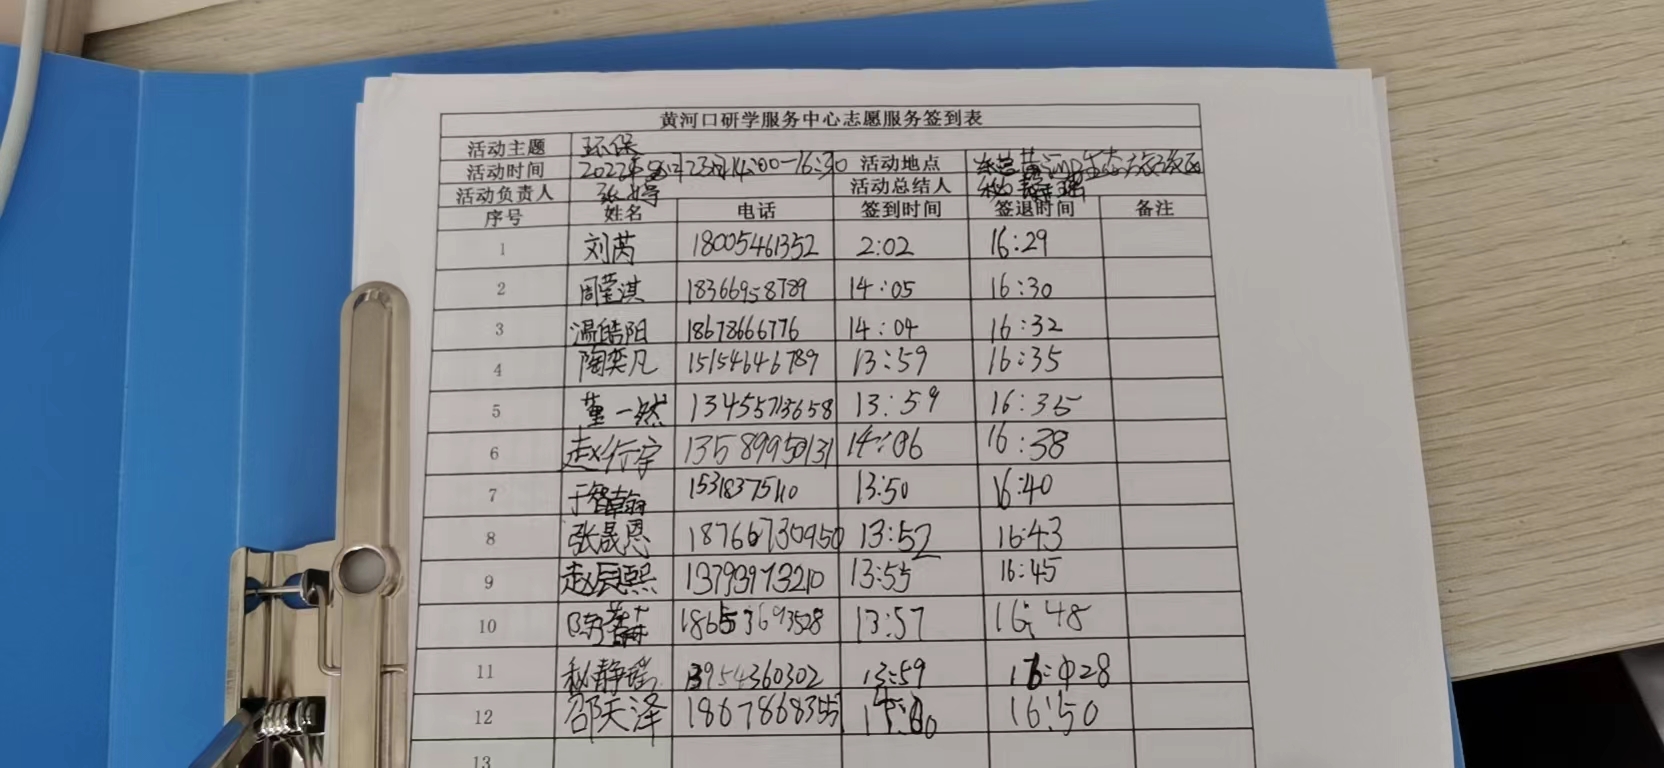 黄河口研学服务中心志愿服务签到表
活动主题 环保
活动时间 2022年 23日14:00-16:30 活动地点
活动负责人 张婷 活动总结人
序号 姓名 电话 签到时间 签退时间 备注
1 刘芮 18005461352 2:02 16:29
2 周莹淇 18366958789 14:05 16:30
3 温皓阳 18678666776 14:04 16:32
4 陶奕凡 15154646789 13:59 16:35
5 董一然 13455713658 13:59 16:35
6 赵行宇 13589950131 14:06 16:38
7 于智翰 15318375110 13:50 16:40
8 张晟恩 18766730950 13:52 16:43
9 赵辰熙 13793973210 13:55 16:45
10 18653693528 13:57 16:48
11 秘静瑶 13954360302 13:59
12 邵天泽 18678683 16:50
13